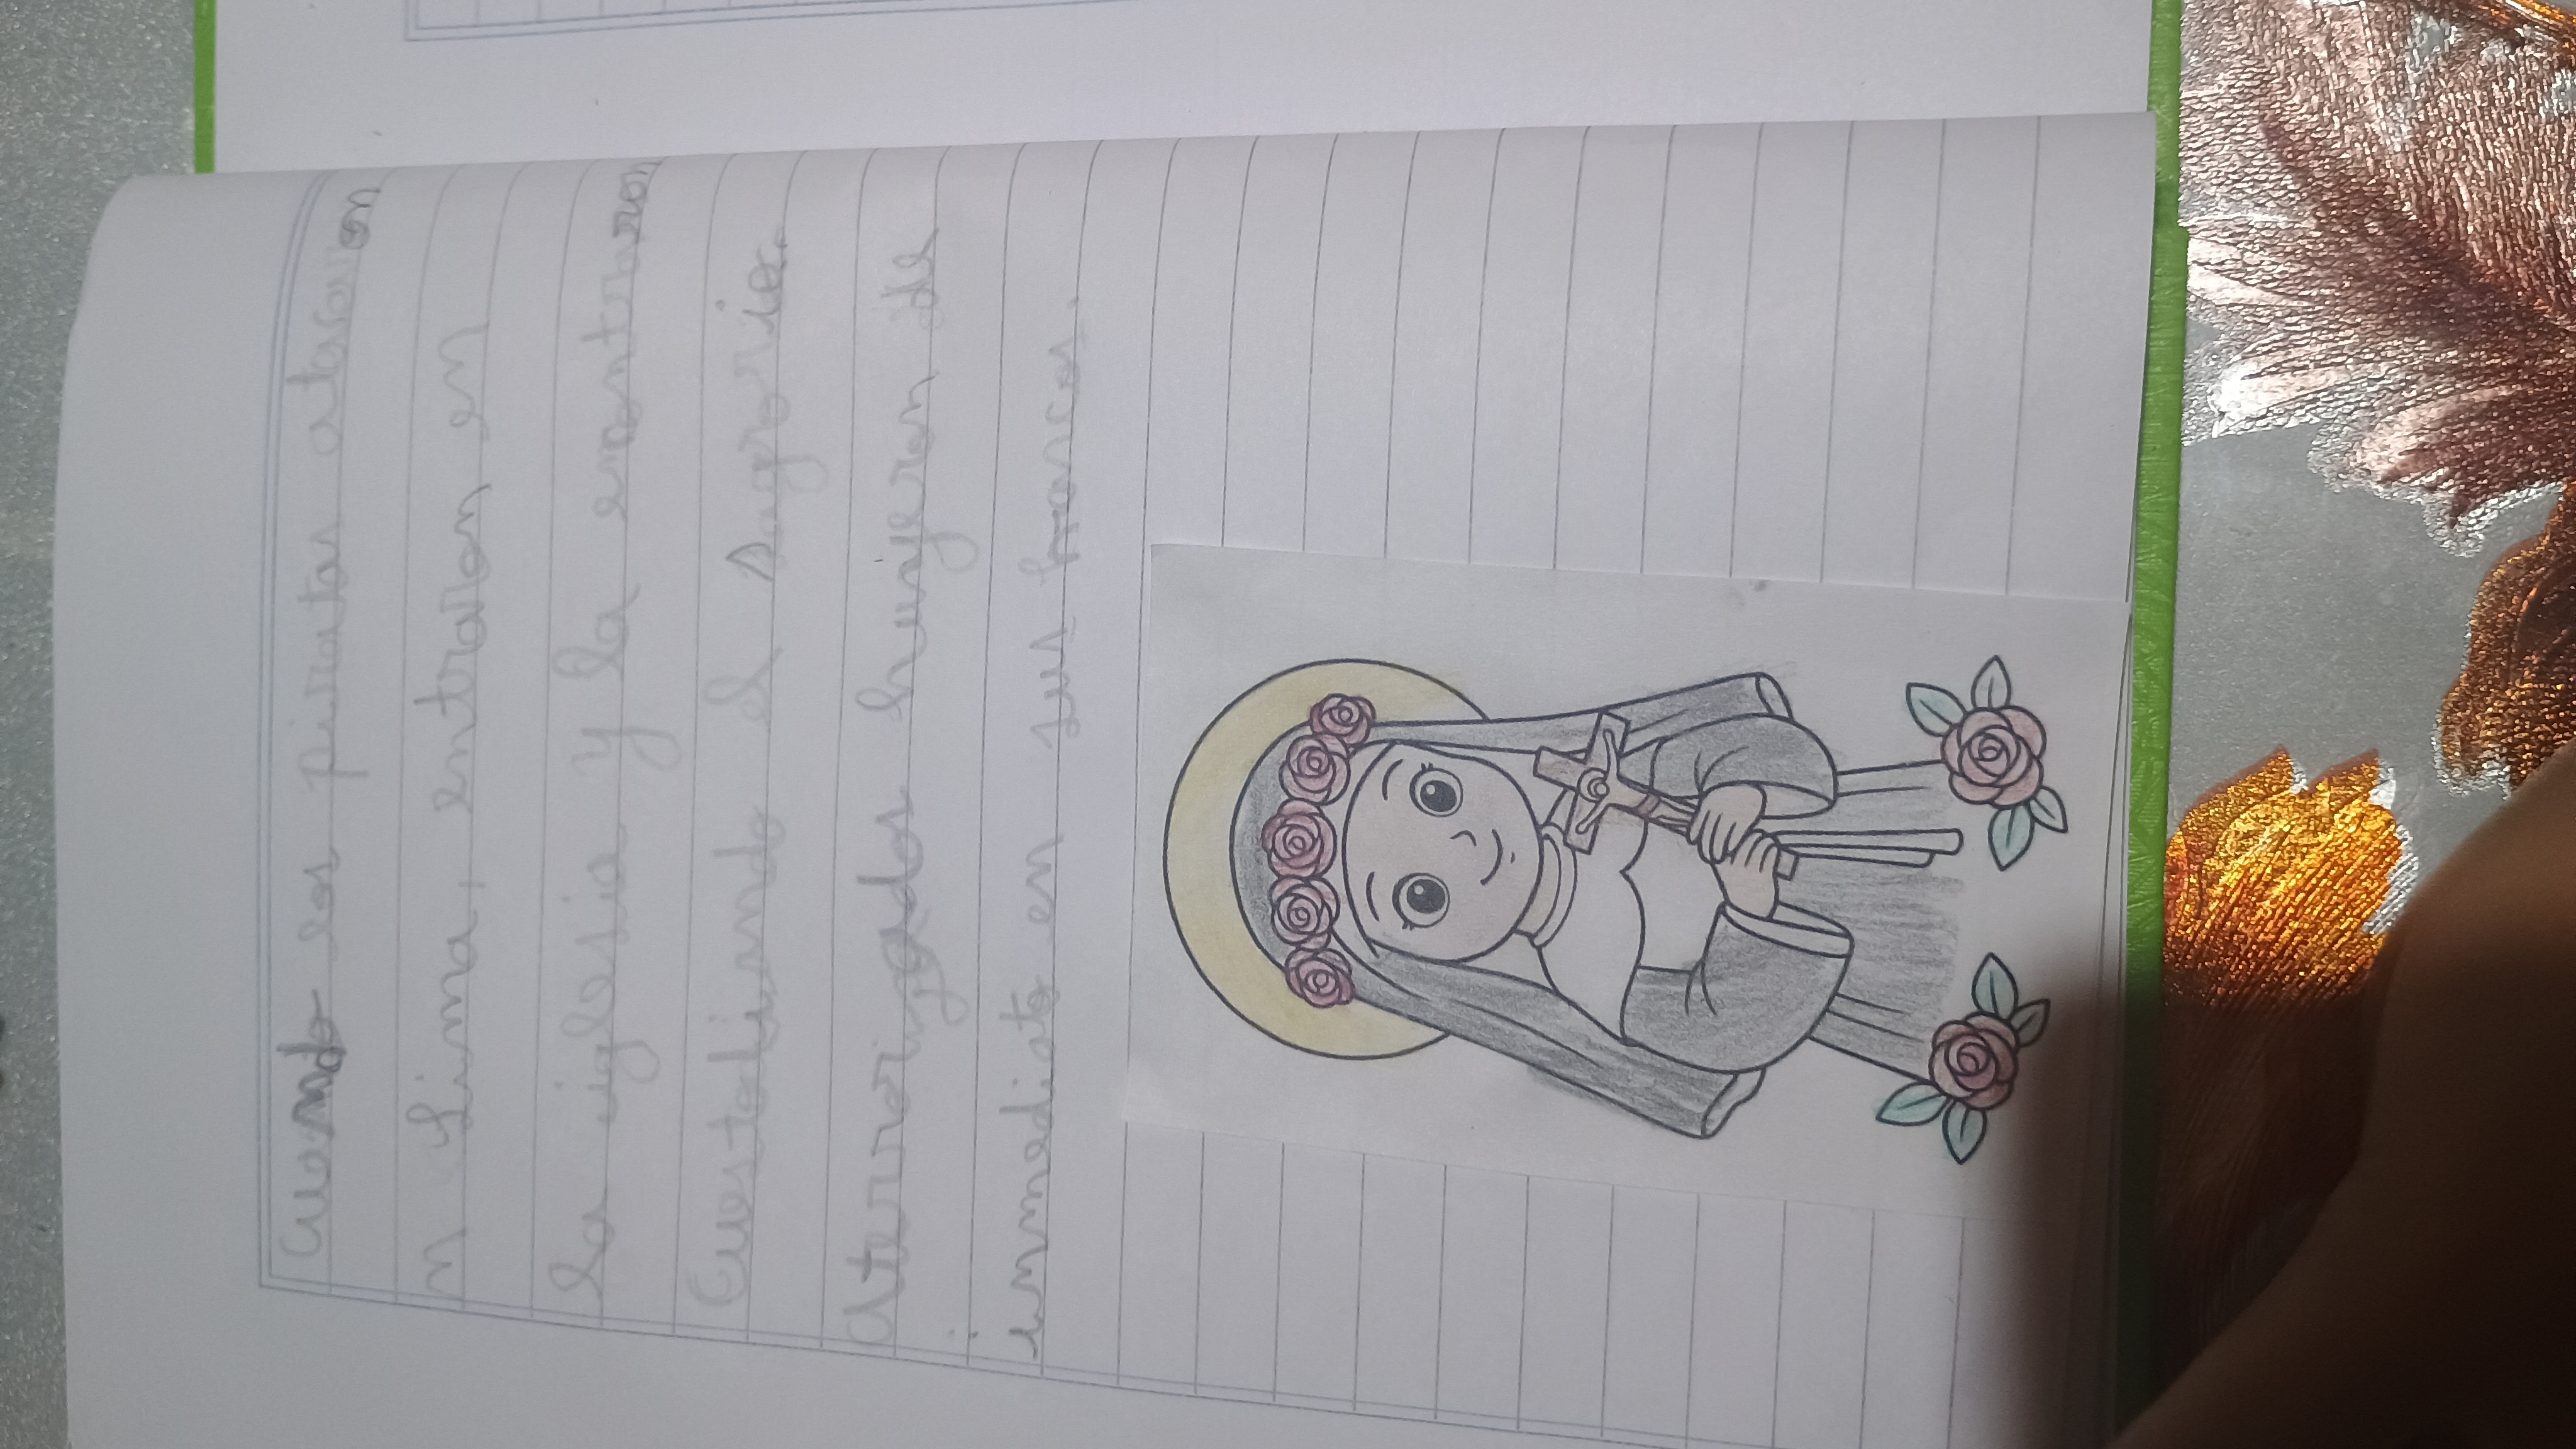 Cuando los piratas atacaron
n Lima, entraron en
la iglesia y la encontraron
Custodiando el Sagrario.
Aterrorizados huyeron de
inmediato en sus barcos.